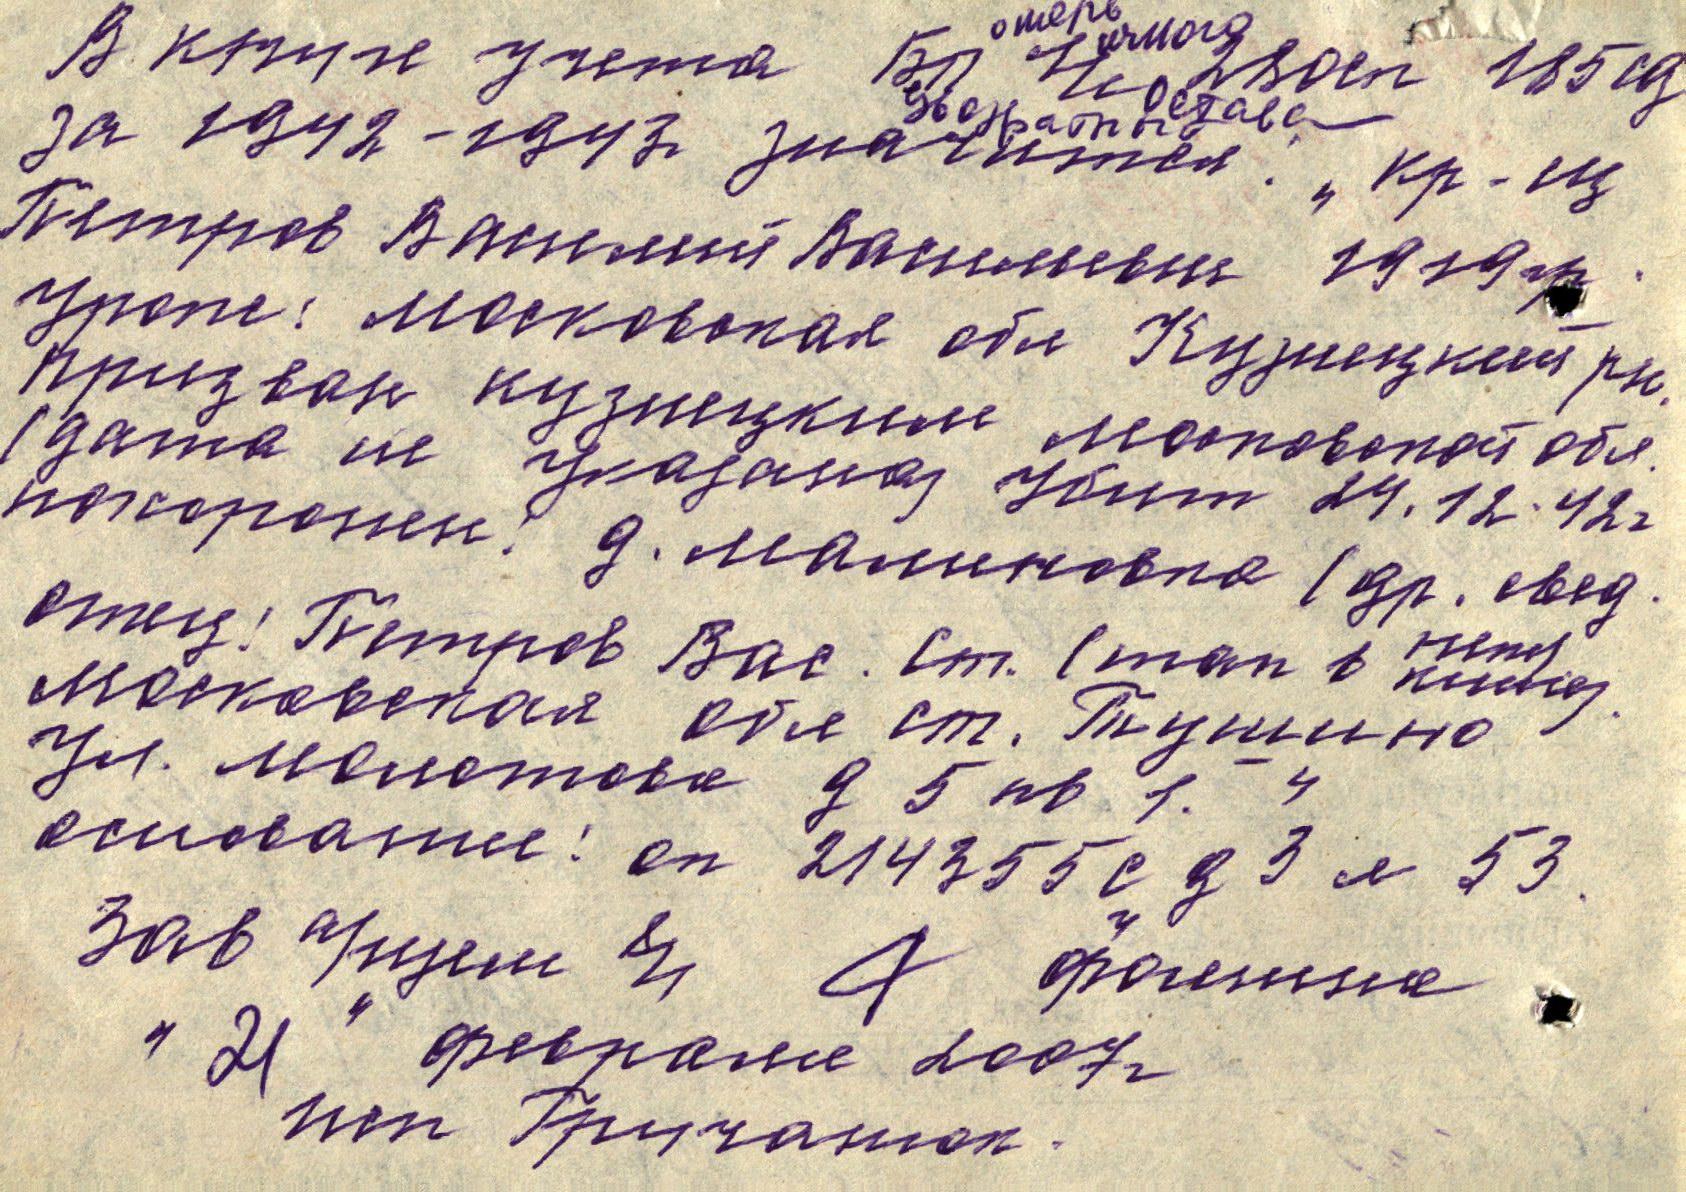 В книге учета БП потерь личного
и 280сп 185сд
безвозвратных состава
за 1942-1943 значится: „кр-ц
Петров Василий Васильевич 1919гр.
Уроже: Московская обл Кузнецкий рн.
призван Кузнецким Московской обл.
(дата не указана) убит 24.12.42г
похоронен: д. Малиновка (др. свед.
отец: Петров Вас. Ст. (так в книге).
нет)
Московская обл ст. Тушино
Ул. Молотова д 5 кв 1. "
основание: оп 214355с д 3 л 53.
Зав архи
Фомина
" 21 " февраля 2007г
исп Гричанюк.